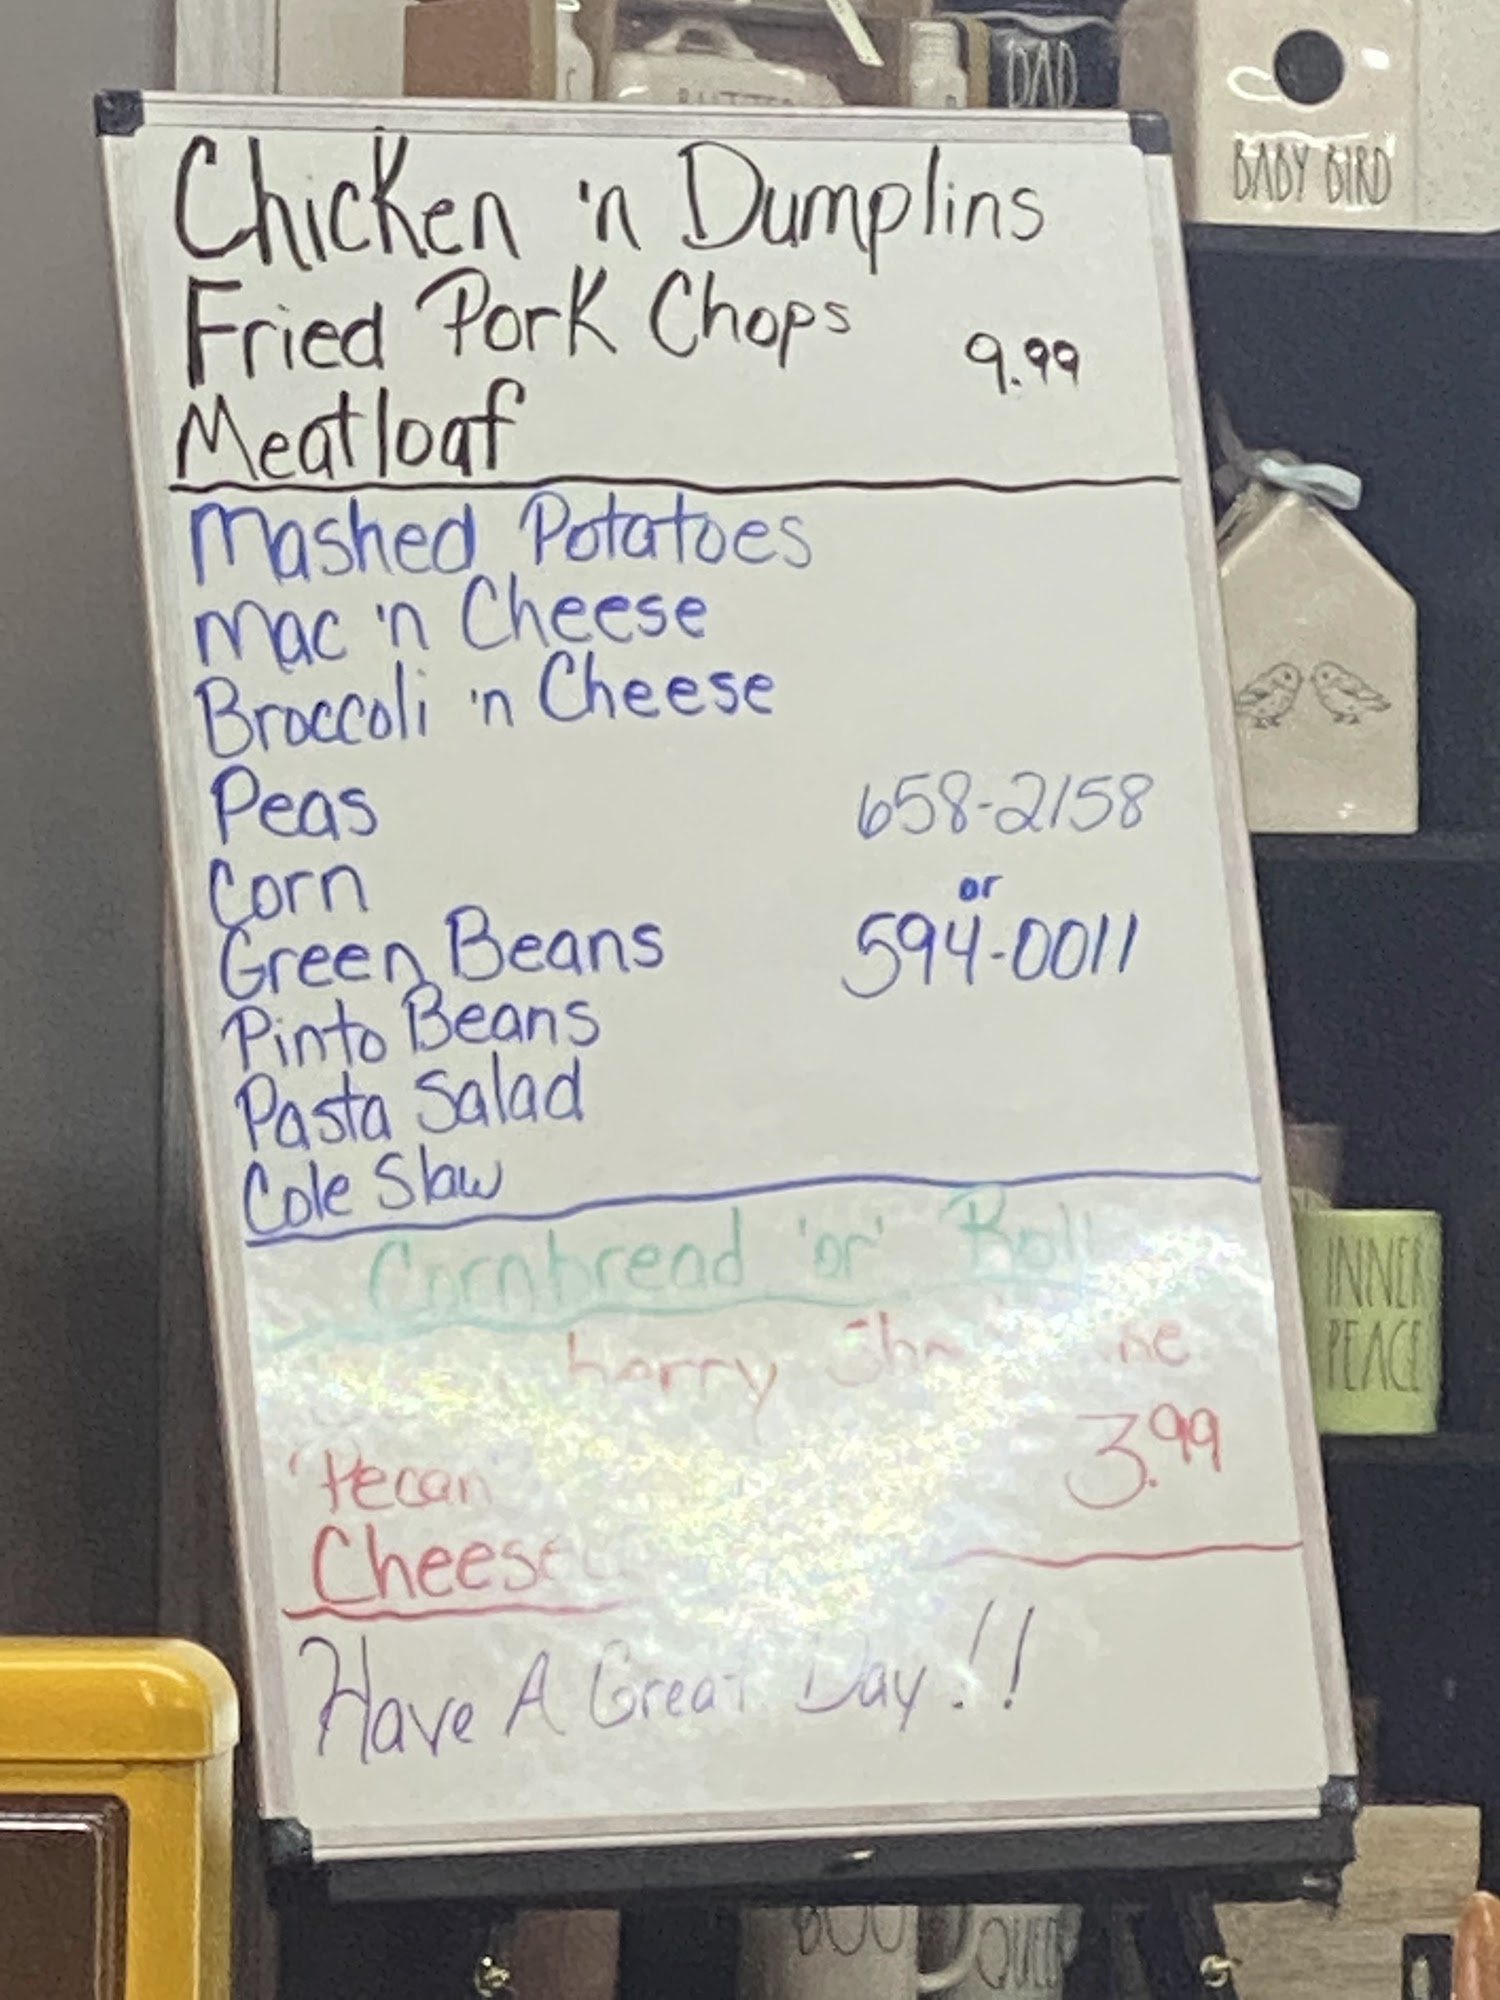 DAD
BABY BIRD
Chicken 'n Dumplins
Fried Pork Chops
9.99
Meatloaf
Mashed Potatoes
Mac 'n Cheese
Broccoli 'n Cheese
Peas
658-2158
Corn
or
Green Beans
594-0011
Pinto Beans
Pasta Salad
Cole Slaw
Cornbread 'or' Roll
3.99
Pecan
Have A Great Day!!
INNER
PEACE
BOO